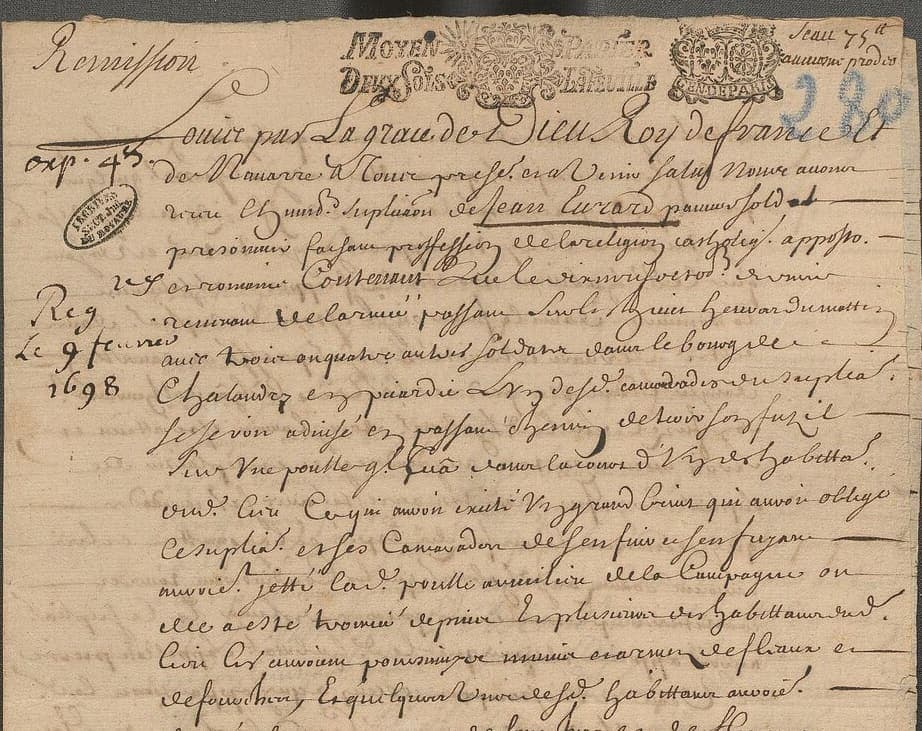 Remission
MOYEN PAPIER
DEUX SOLS LA FEUILLE
GEN DE PARIS
Seau 75
Louis par La grace de Dieu Roy de france Et
exp. 45.
de Navarre A Tous presē. et a Venir salut Nous avons
receu Et humb. suplication de Jean Eurard pauvre soldat
prisonnier faisant proffession de la religion catholiq. apposto.
et romaine Contenant Que le
Reg
le 9 fevrier
1698
revenant de larmée passant sur les huict heures du mattin
avec trois ou quatre autres soldats dans le bourg de
Chalandry en picardie L'un desd. camarades du suplia.
se seroit advisé en passant chemin de tirer son fuzil
sur Une poulle q. dans la court d'Un des habitta.
dud. lieu Ce qui auroit excité Un grand bruit qui auroit oblige
Ce suplia. et ses Camarades de senfuir et sen fuyant
auroie. jetté lad. poulle au millieu de la Campagne ou
elle a esté trouvée depuis Et plusieurs des habittans dud.
lieu les auroient poursuivys munis et armez de fleaux et
de fourches, Et quelques Uns desd. habittans auroie.